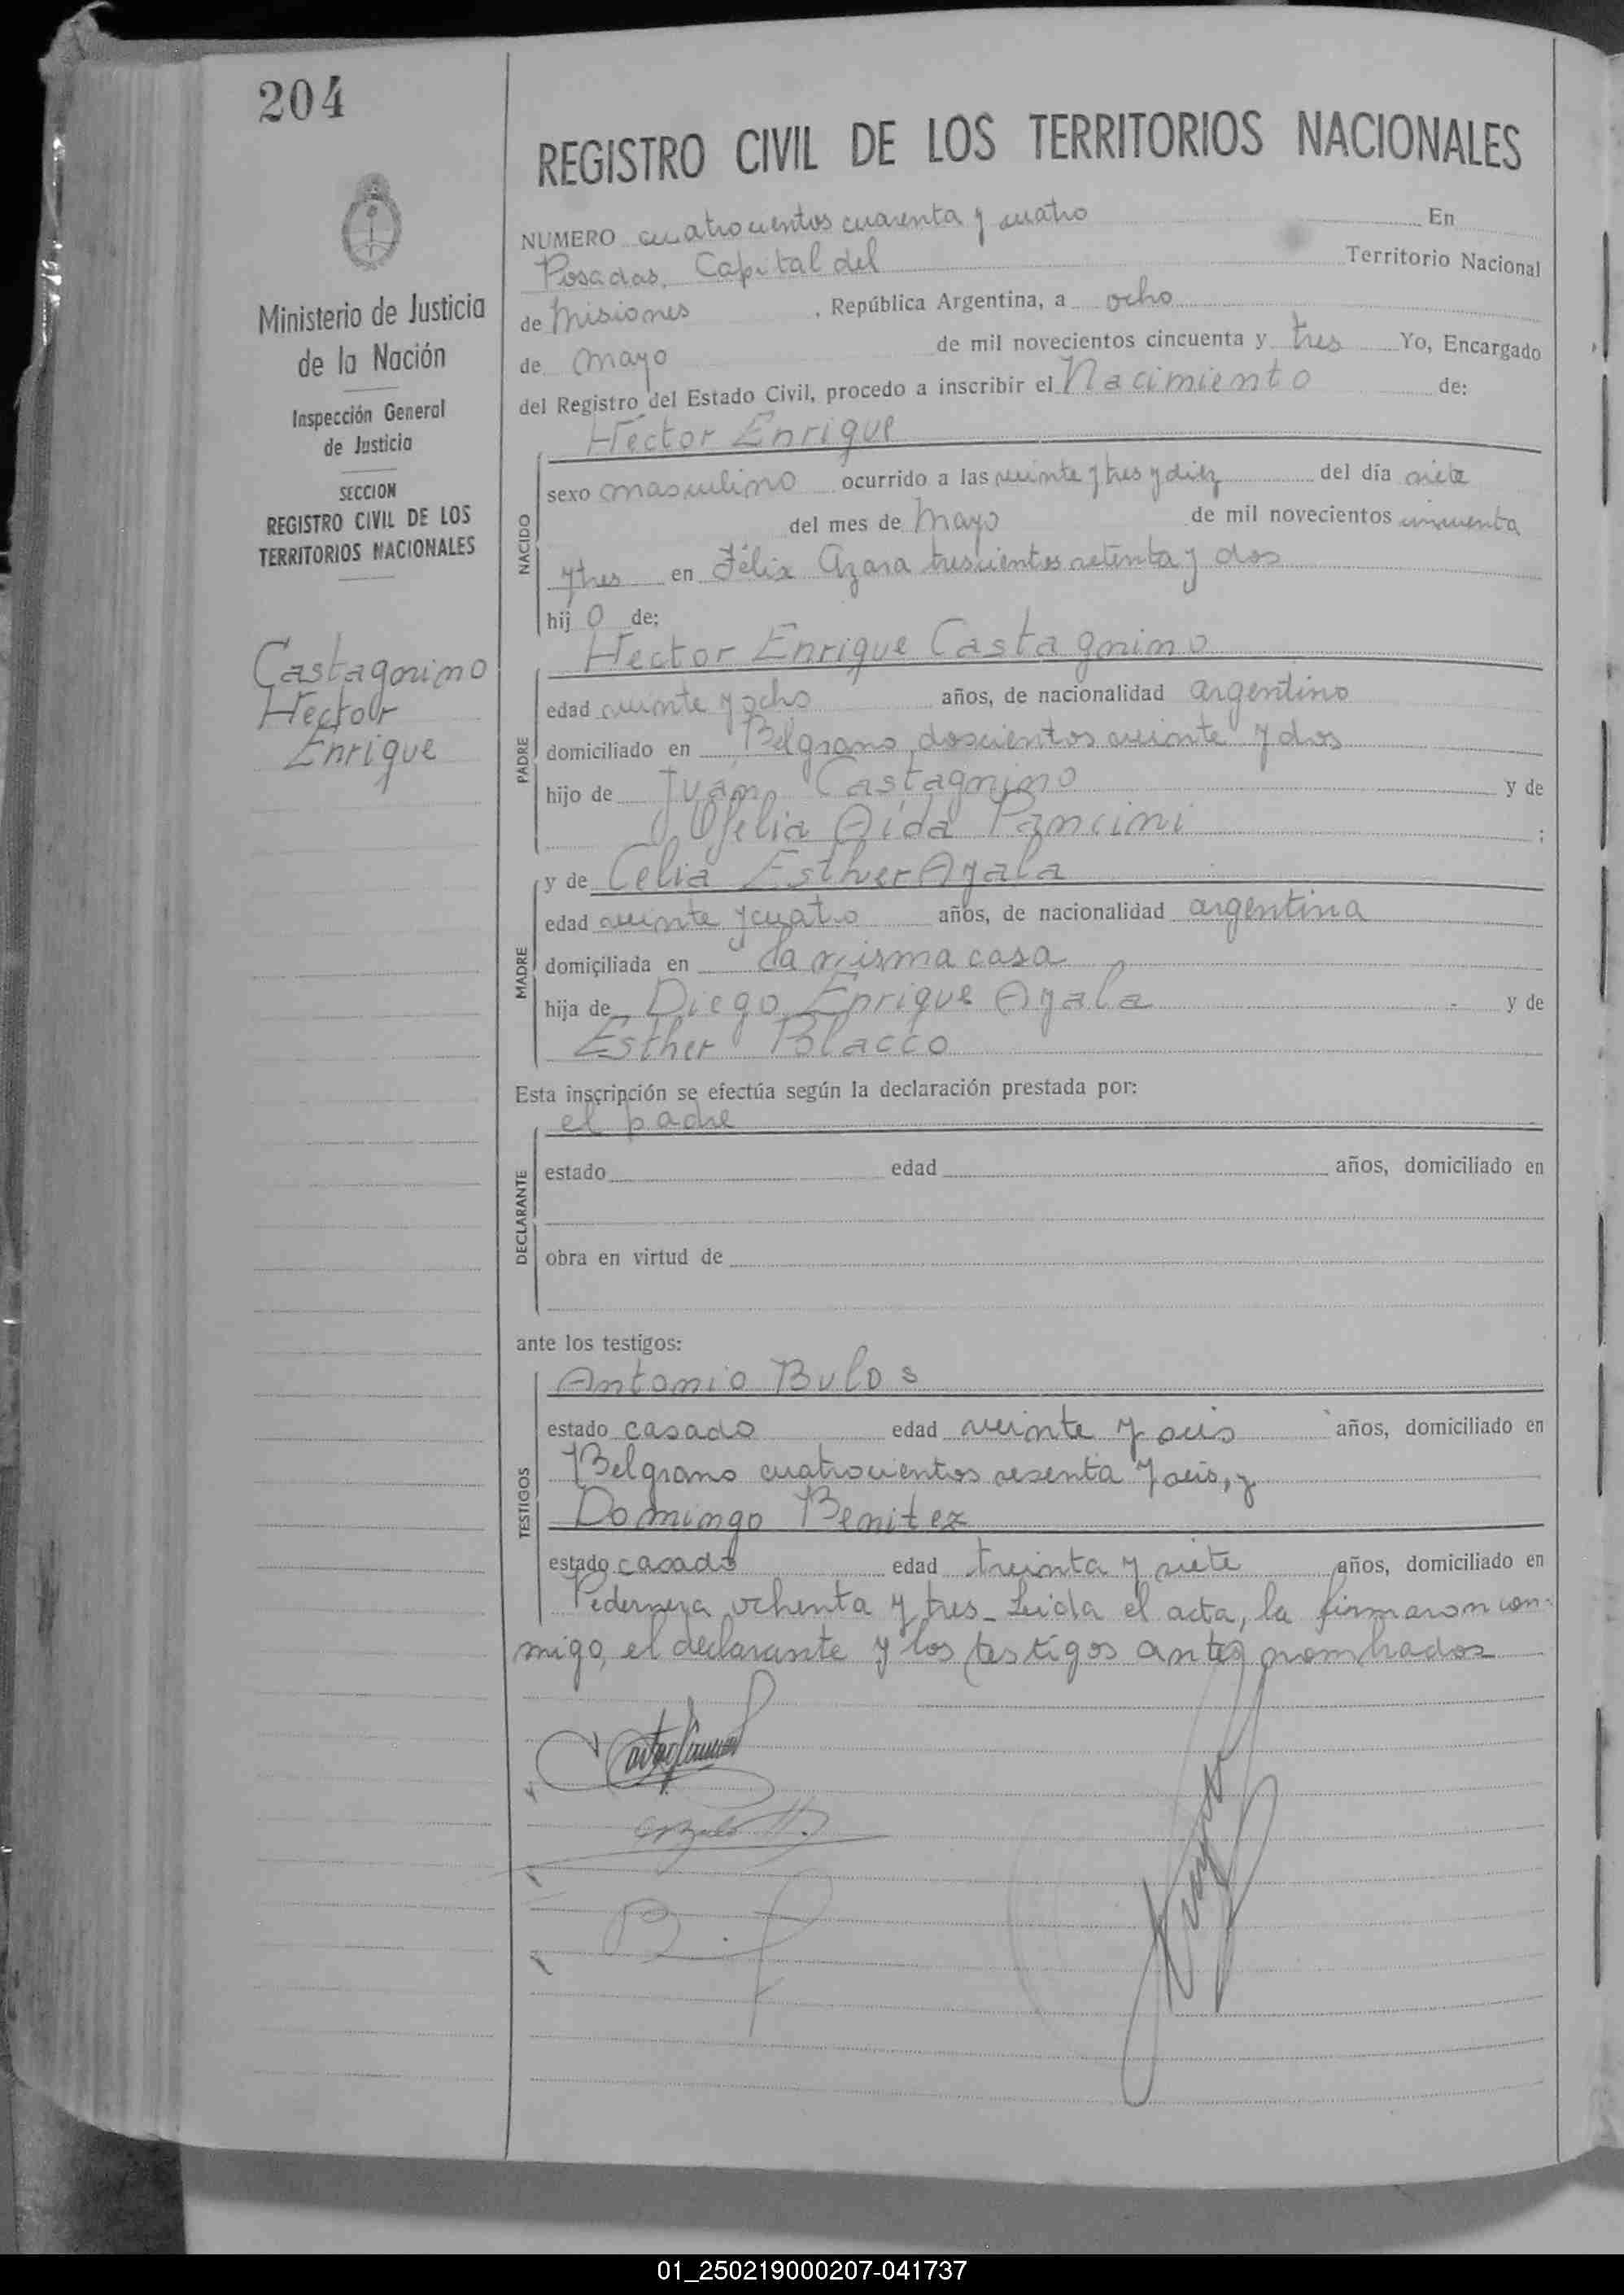 204
REGISTRO CIVIL DE LOS TERRITORIOS NACIONALES
Ministerio de Justicia
de la Nación
Inspección General
de Justicia
SECCION
REGISTRO CIVIL DE LOS
TERRITORIOS NACIONALES
Castagnino
Hector
Enrique
NUMERO cuatrocientos cuarenta y cuatro En
Posadas, Capital del Territorio Nacional
de Misiones, República Argentina, a ocho
de mayo de mil novecientos cincuenta y tres Yo, Encargado
del Registro del Estado Civil, procedo a inscribir el Nacimiento de:
Hector Enrique
NACIDO
sexo masculino ocurrido a las veinte y tres y diez del día siete
del mes de Mayo de mil novecientos cincuenta
y tres en Félix Azara trescientos setenta y dos
hijo de:
Hector Enrique Castagnino
PADRE
edad veinte y ocho años, de nacionalidad argentino
domiciliado en Belgrano doscientos veinte y dos
hijo de Juán Castagnino y de
Ofelia Aída Pancini ;
y de Celia Esther Ayala
MADRE
edad veinte y cuatro años, de nacionalidad argentina
domiciliada en la misma casa
hija de Diego Enrique Ayala y de
Esther Polacco
Esta inscripción se efectúa según la declaración prestada por:
el padre
DECLARANTE
estado edad años, domiciliado en
obra en virtud de
ante los testigos:
Antonio Bulos
TESTIGOS
estado casado edad veinte y seis años, domiciliado en
Belgrano cuatrocientos sesenta y seis, y
Domingo Benitez
estado casado edad treinta y siete años, domiciliado en
Pedernera ochenta y tres - Leida el acta, la firmaron con-
migo, el declarante y los testigos antes nombrados
01_250219000207-041737